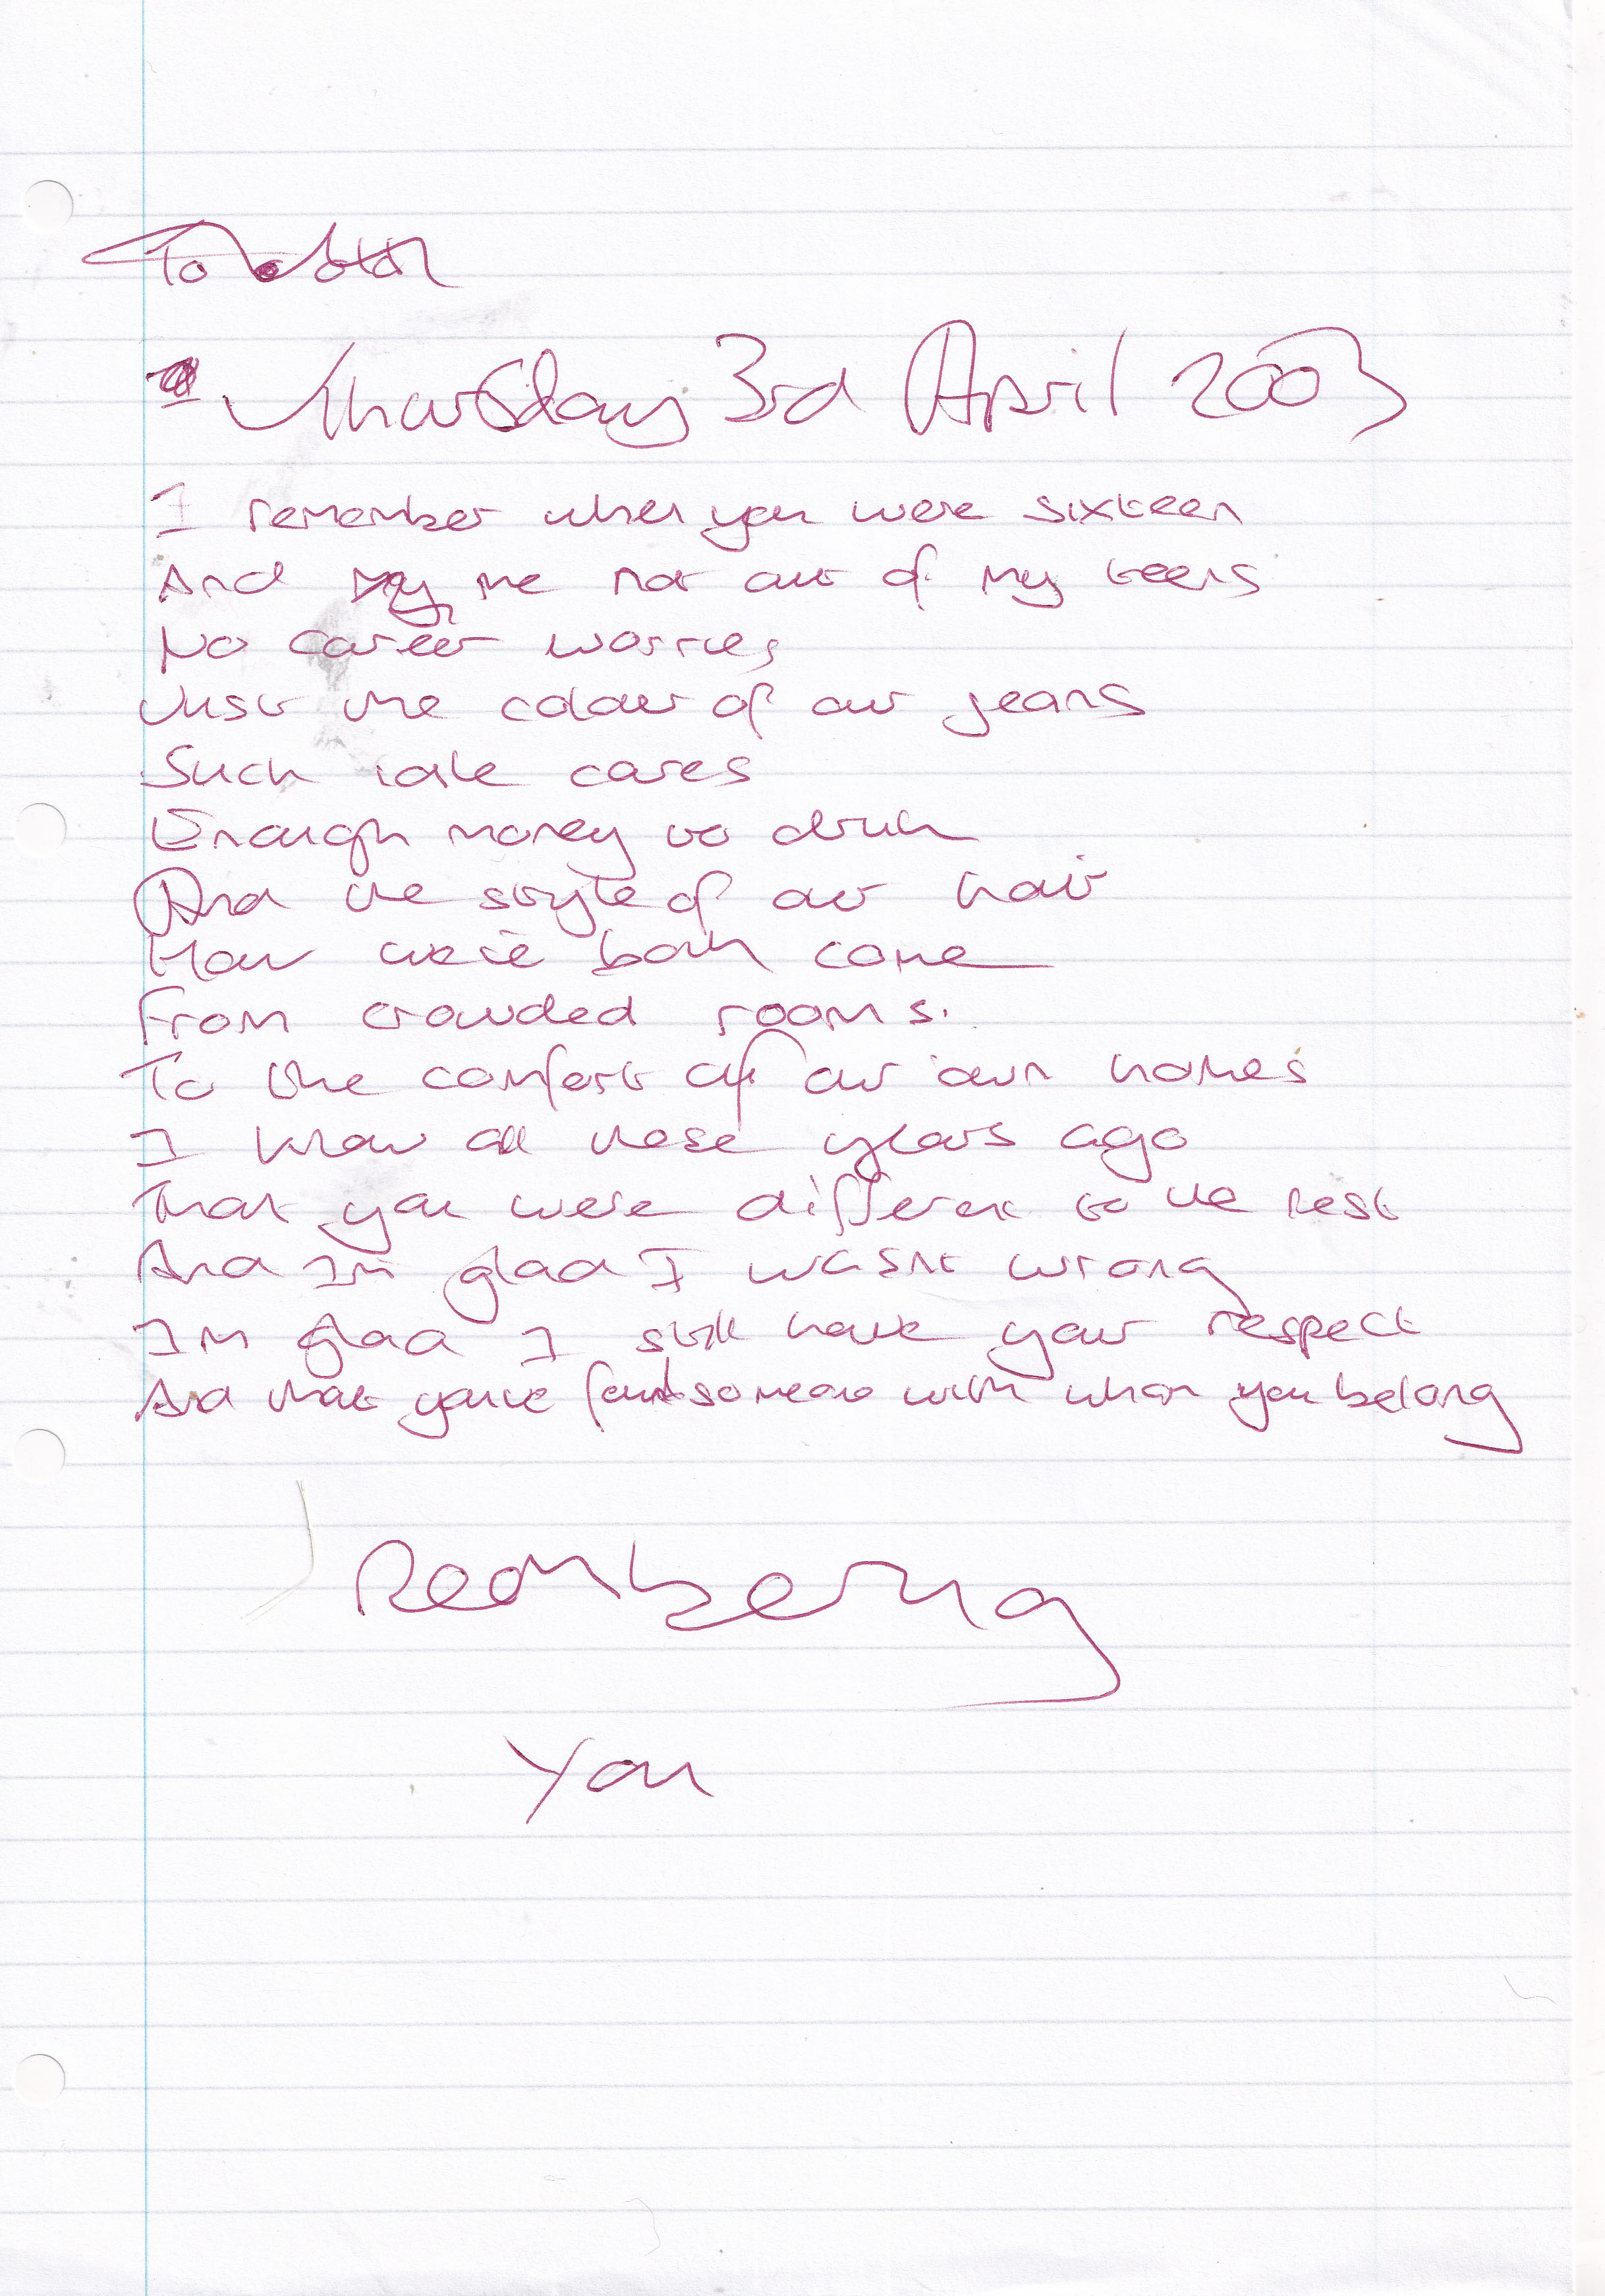 To
Thursday 3rd April 2003
I remember when you were sixteen
And my me not out of my teens
No career worries
Just the colour of our jeans
Such idle cares
Enough money to drink
And the style of our hair
How we've both come
From crowded rooms.
To the comfort of our own homes
I knew all these years ago
That you were different to the rest
And I'm glad I wasnt wrong
Im glad I still have your respect
And that you've found someone with whom you belong
You